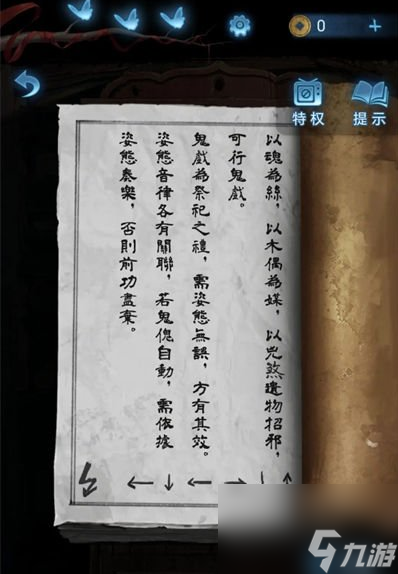 0
特权 提示
以魂為絲，以木偶為媒，以兇煞遺物招邪，
可行鬼戲。
鬼戲為祭祀之禮，需姿態無誤，方有其效。
姿態音律各有關聯，若鬼傀自動，需依據
姿態奏樂，否則前功盡棄。
←↓←→
九游